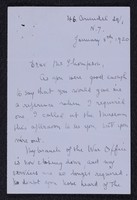 46 Arundel Sq.,
N.7
January 5th 1920
Dear Mr Thompson,
As you were good enough
to say that you would give me
a reference when I required
one I called at the Museum
this afternoon to see you but you
were out.
My branch of the War Office
is now closing down and my
services no longer required,
no doubt you have heard of the